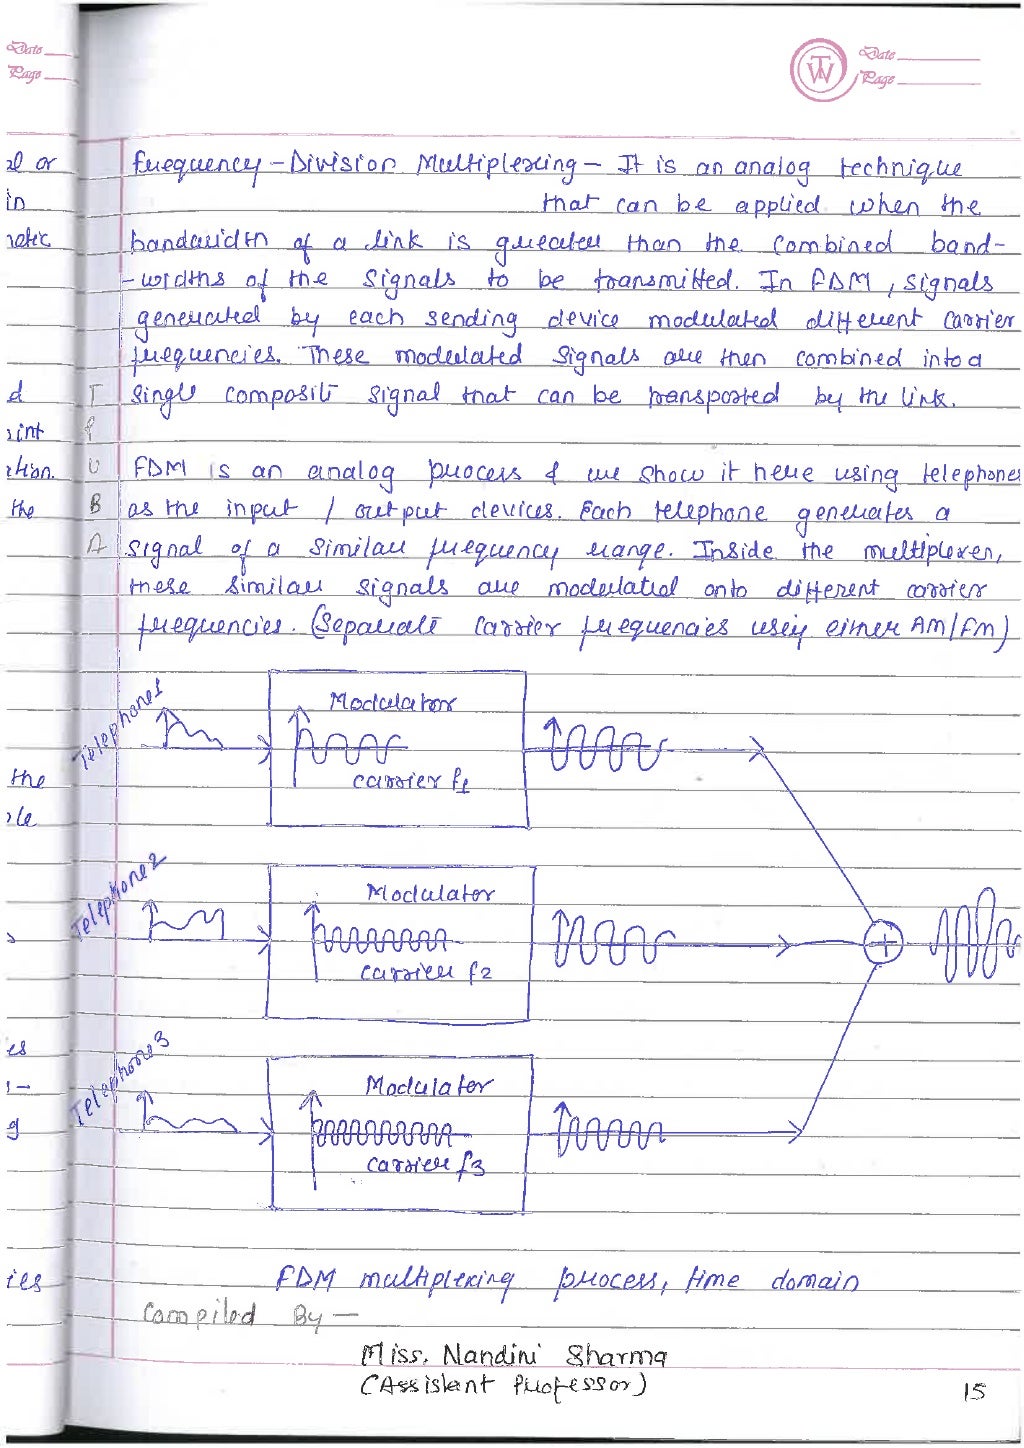 Date
Page
Date
Page
al or
in
d
the
the
es
g
ies
T
U
B
A
TW
Frequency - Division Multiplexing - It is an analog technique
that can be applied when the
bandwidth of a link is greater than the combined band-
-widths of the signals to be transmitted. In FDM, signals
generated by each sending device modulated different carrier
frequencies. These modulated signals are then combined into a
single composite signal that can be transported by the link.
FDM is an analog process & we show it here using telephones
as the input / output devices. Each telephone generates a
signal of a similar frequency range. Inside the multiplexer,
these similar signals are modulated onto different carrier
frequencies. (Separate carrier frequencies using either AM/FM)
Telephone1
Modulator
carrier f1
Telephone2
Modulator
carrier f2
+
Telephone3
Modulator
carrier f3
FDM multiplexing process, time domain
Compiled By —
Miss. Nandini Sharma
(Assistant Professor)
15